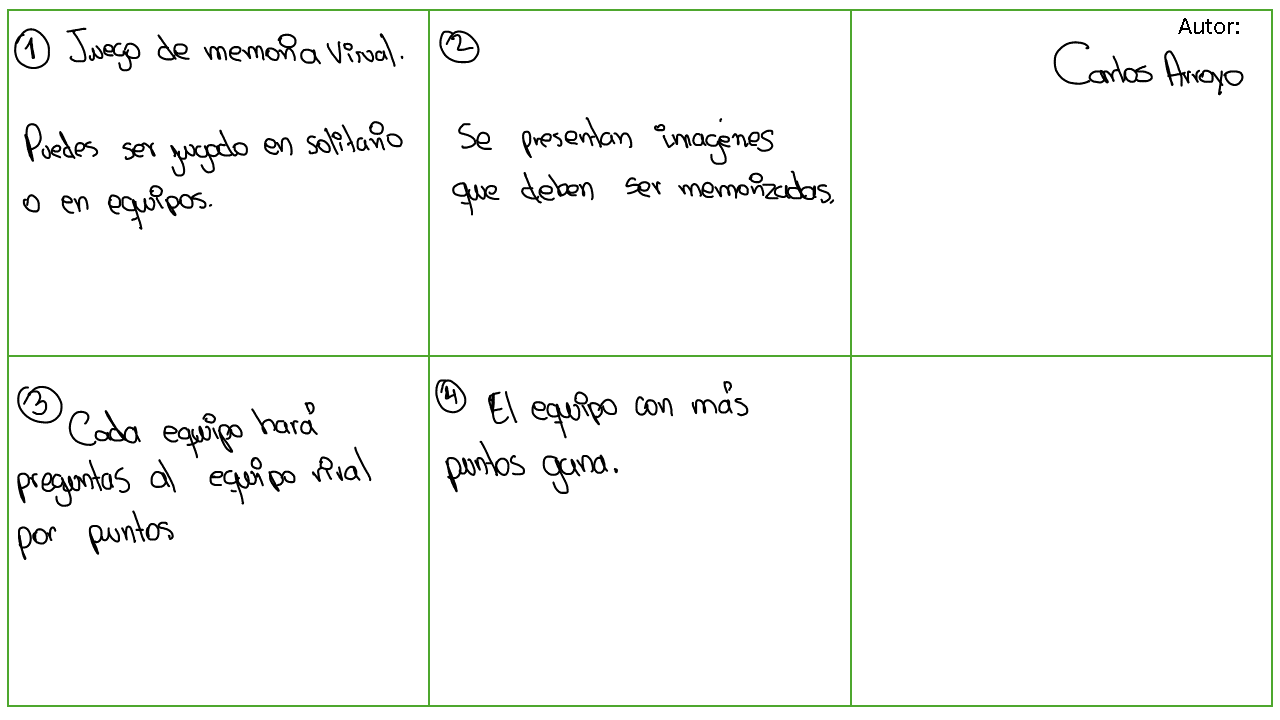 ① Juego de memoria Visual.
Puedes ser jugado en solitario
o en equipos.
②
Se presentan imagénes
que deben ser memorizadas.
Autor:
Carlos Arroyo
③
Cada equipo hará
preguntas al equipo rival
por puntos
④ El equipo con más
puntos gana.